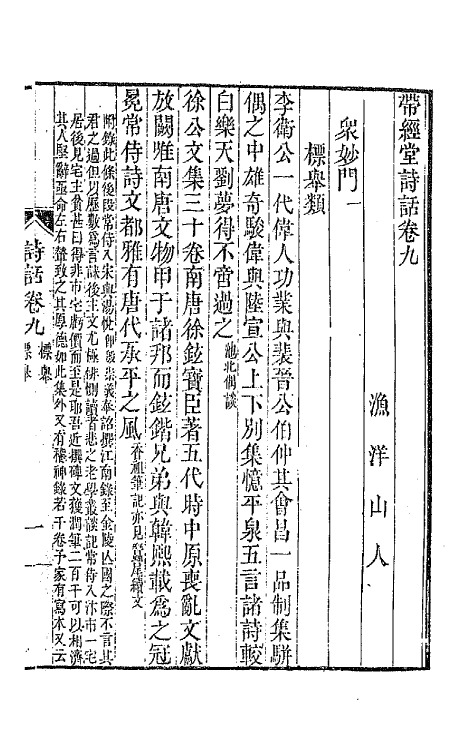 帶經堂詩話卷九
漁洋山人
衆妙門一
標舉類
李衛公一代偉人功業與裴晉公伯仲其會昌一品制集駢
偶之中雄奇駿偉與陸宣公上下別集憶平泉五言諸詩較
白樂天劉夢得不啻過之池北偶談
徐公文集三十卷南唐徐鉉寶臣著五代時中原喪亂文獻
放闕唯南唐文物甲于諸邦而鉉鍇兄弟與韓熙載爲之冠
冕常侍詩文都雅有唐代承平之風香祖筆記亦見蠶尾續文
附錄此條後段常侍入宋與湯悅
奉詔撰江南錄至金陵亡國之際不言其
君之過但以歷數爲言誄後主文尤極悱惻讀者悲之老學叢談記常侍入汴市一宅
居後見宅主貧甚曰得非市宅虧價而至是耶吾近撰碑文獲潤筆二百千可以相濟
其人堅辭亟命左右輦致之其厚德如此集外又有稽神錄若干卷予家有寫本又云
詩話卷九
標舉
一